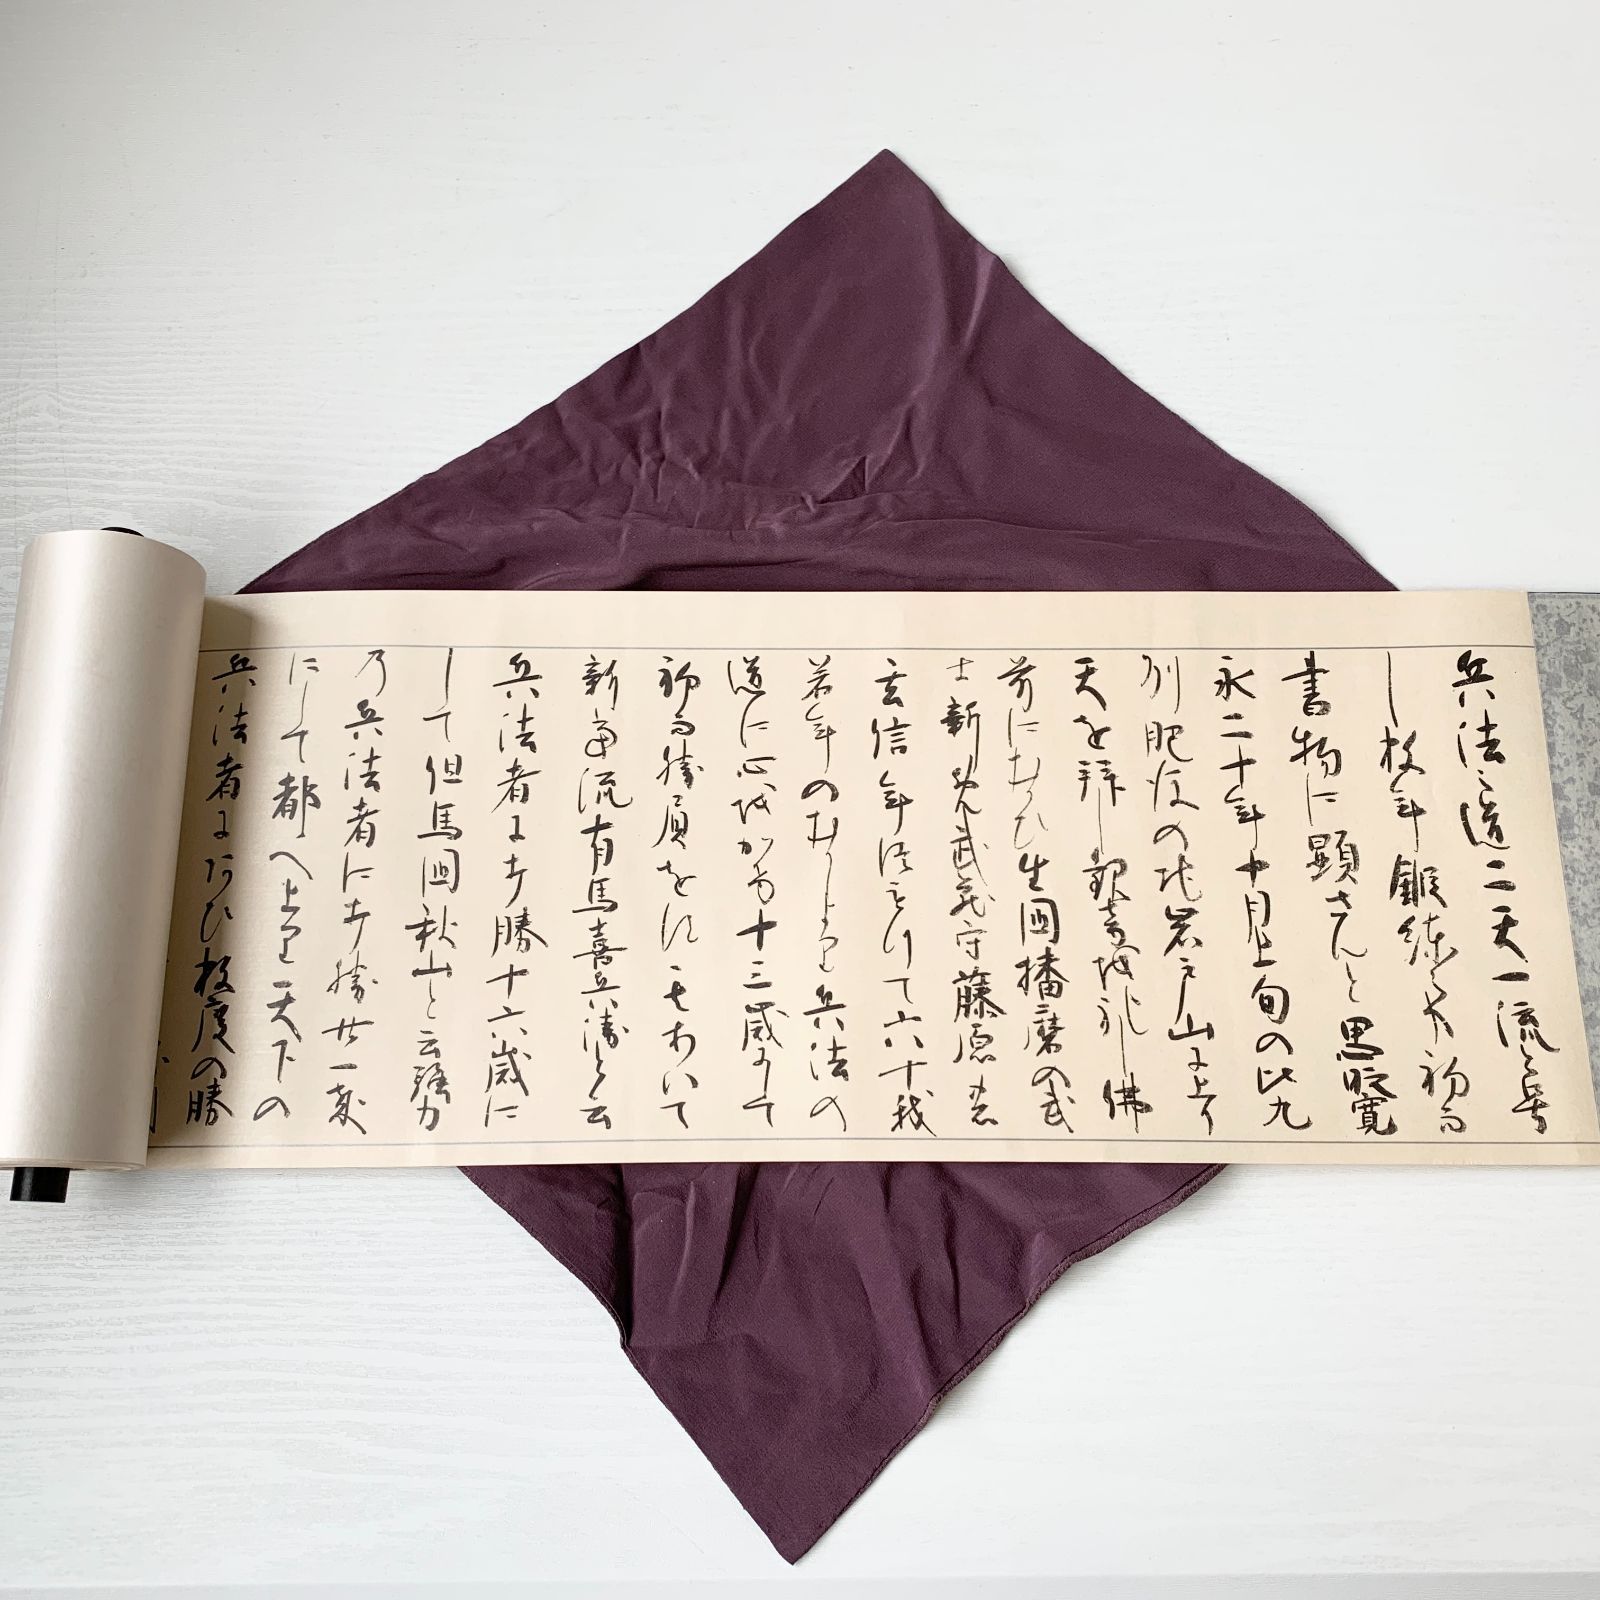 兵法之道二天一流と号
し数年鍛練之事初而
書物に顕さんと思時寛
永二十年十月上旬の比九
州肥後の地岩戸山に上り
天を拝し観音を礼し佛
前にむかひ生國播磨の武
士新免武蔵守藤原
玄信年つもりて六十我
若年のむかしより兵法の
道に心をかけ十三歳にして
初而勝負をす其あいて
新當流有馬喜兵衛と云
兵法者に打勝十六歳に
して但馬國秋山と云強力
乃兵法者に打勝廿一歳
にして都へ上り天下の
兵法者にあひ数度の勝